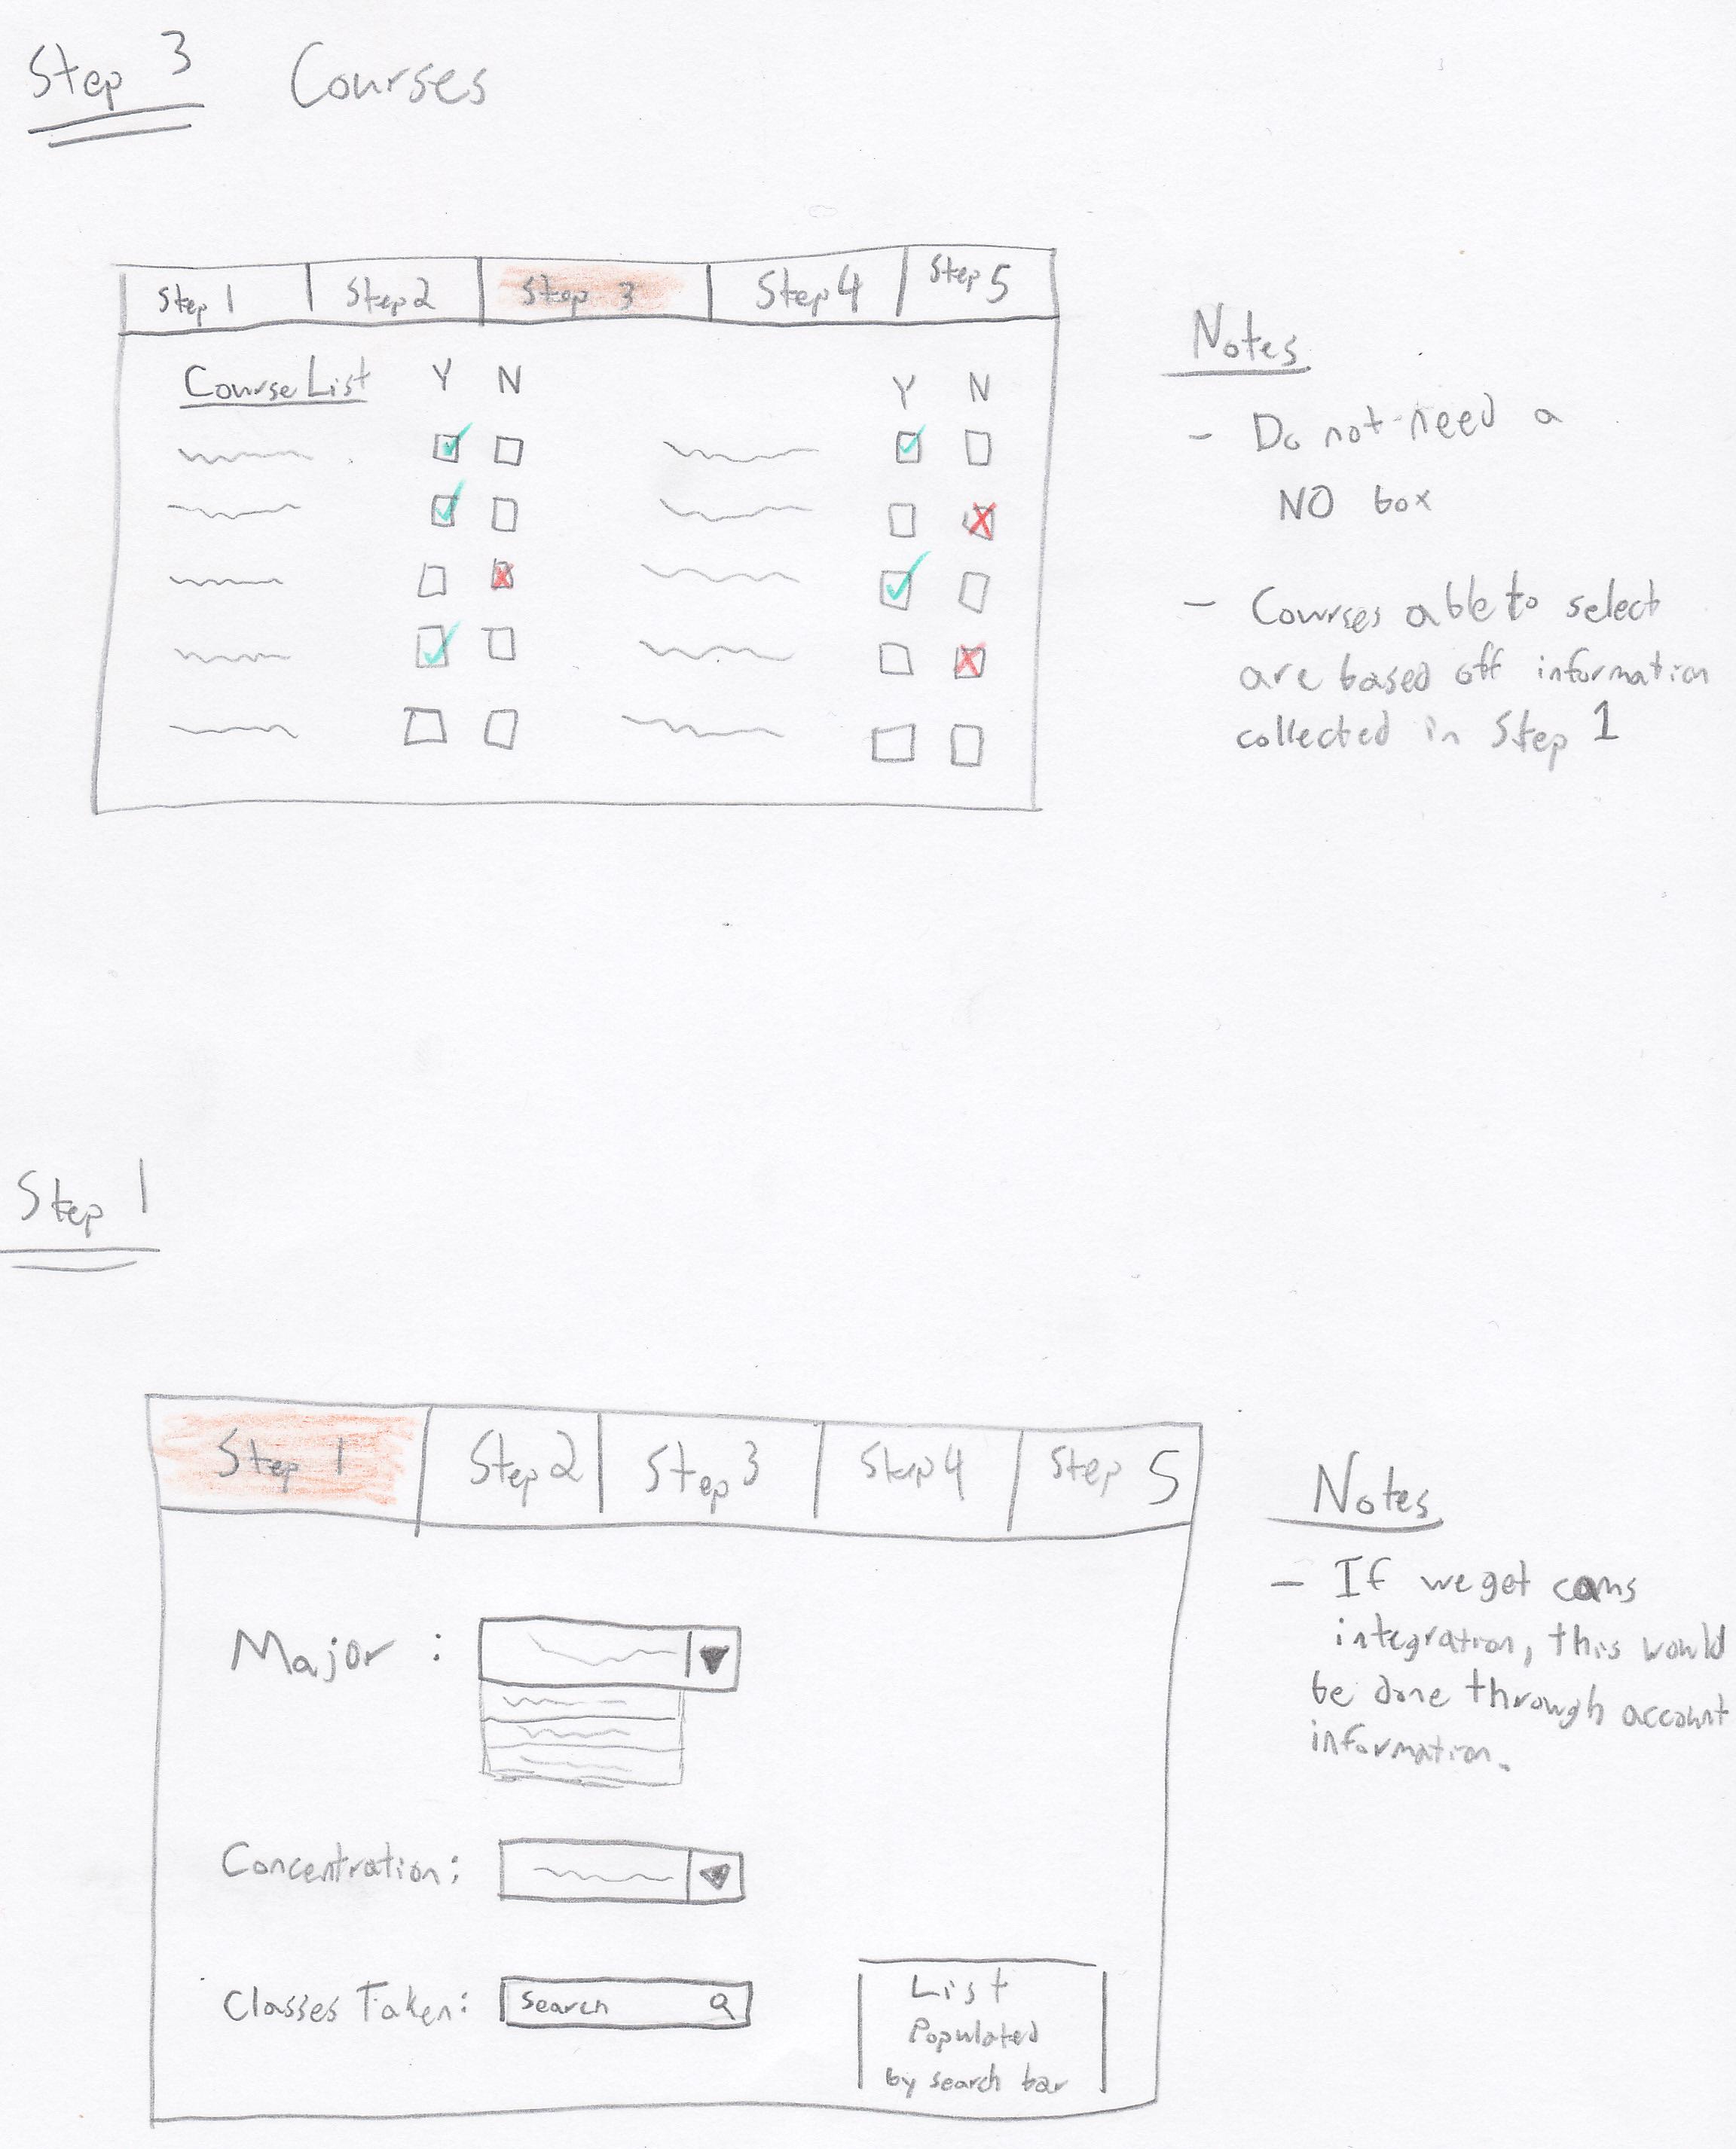 Step 3 Courses
Step 1 Step 2 Step 3 Step 4 Step 5
Course List Y N Y N
Notes
- Do not need a
NO box
- Courses able to select
are based off information
collected in Step 1
Step 1
Step 1 Step 2 Step 3 Step 4 Step 5
Major :
Concentration:
Classes Taken: Search
List
Populated
by search bar
Notes
- If we get cams
integration, this would
be done through account
information.